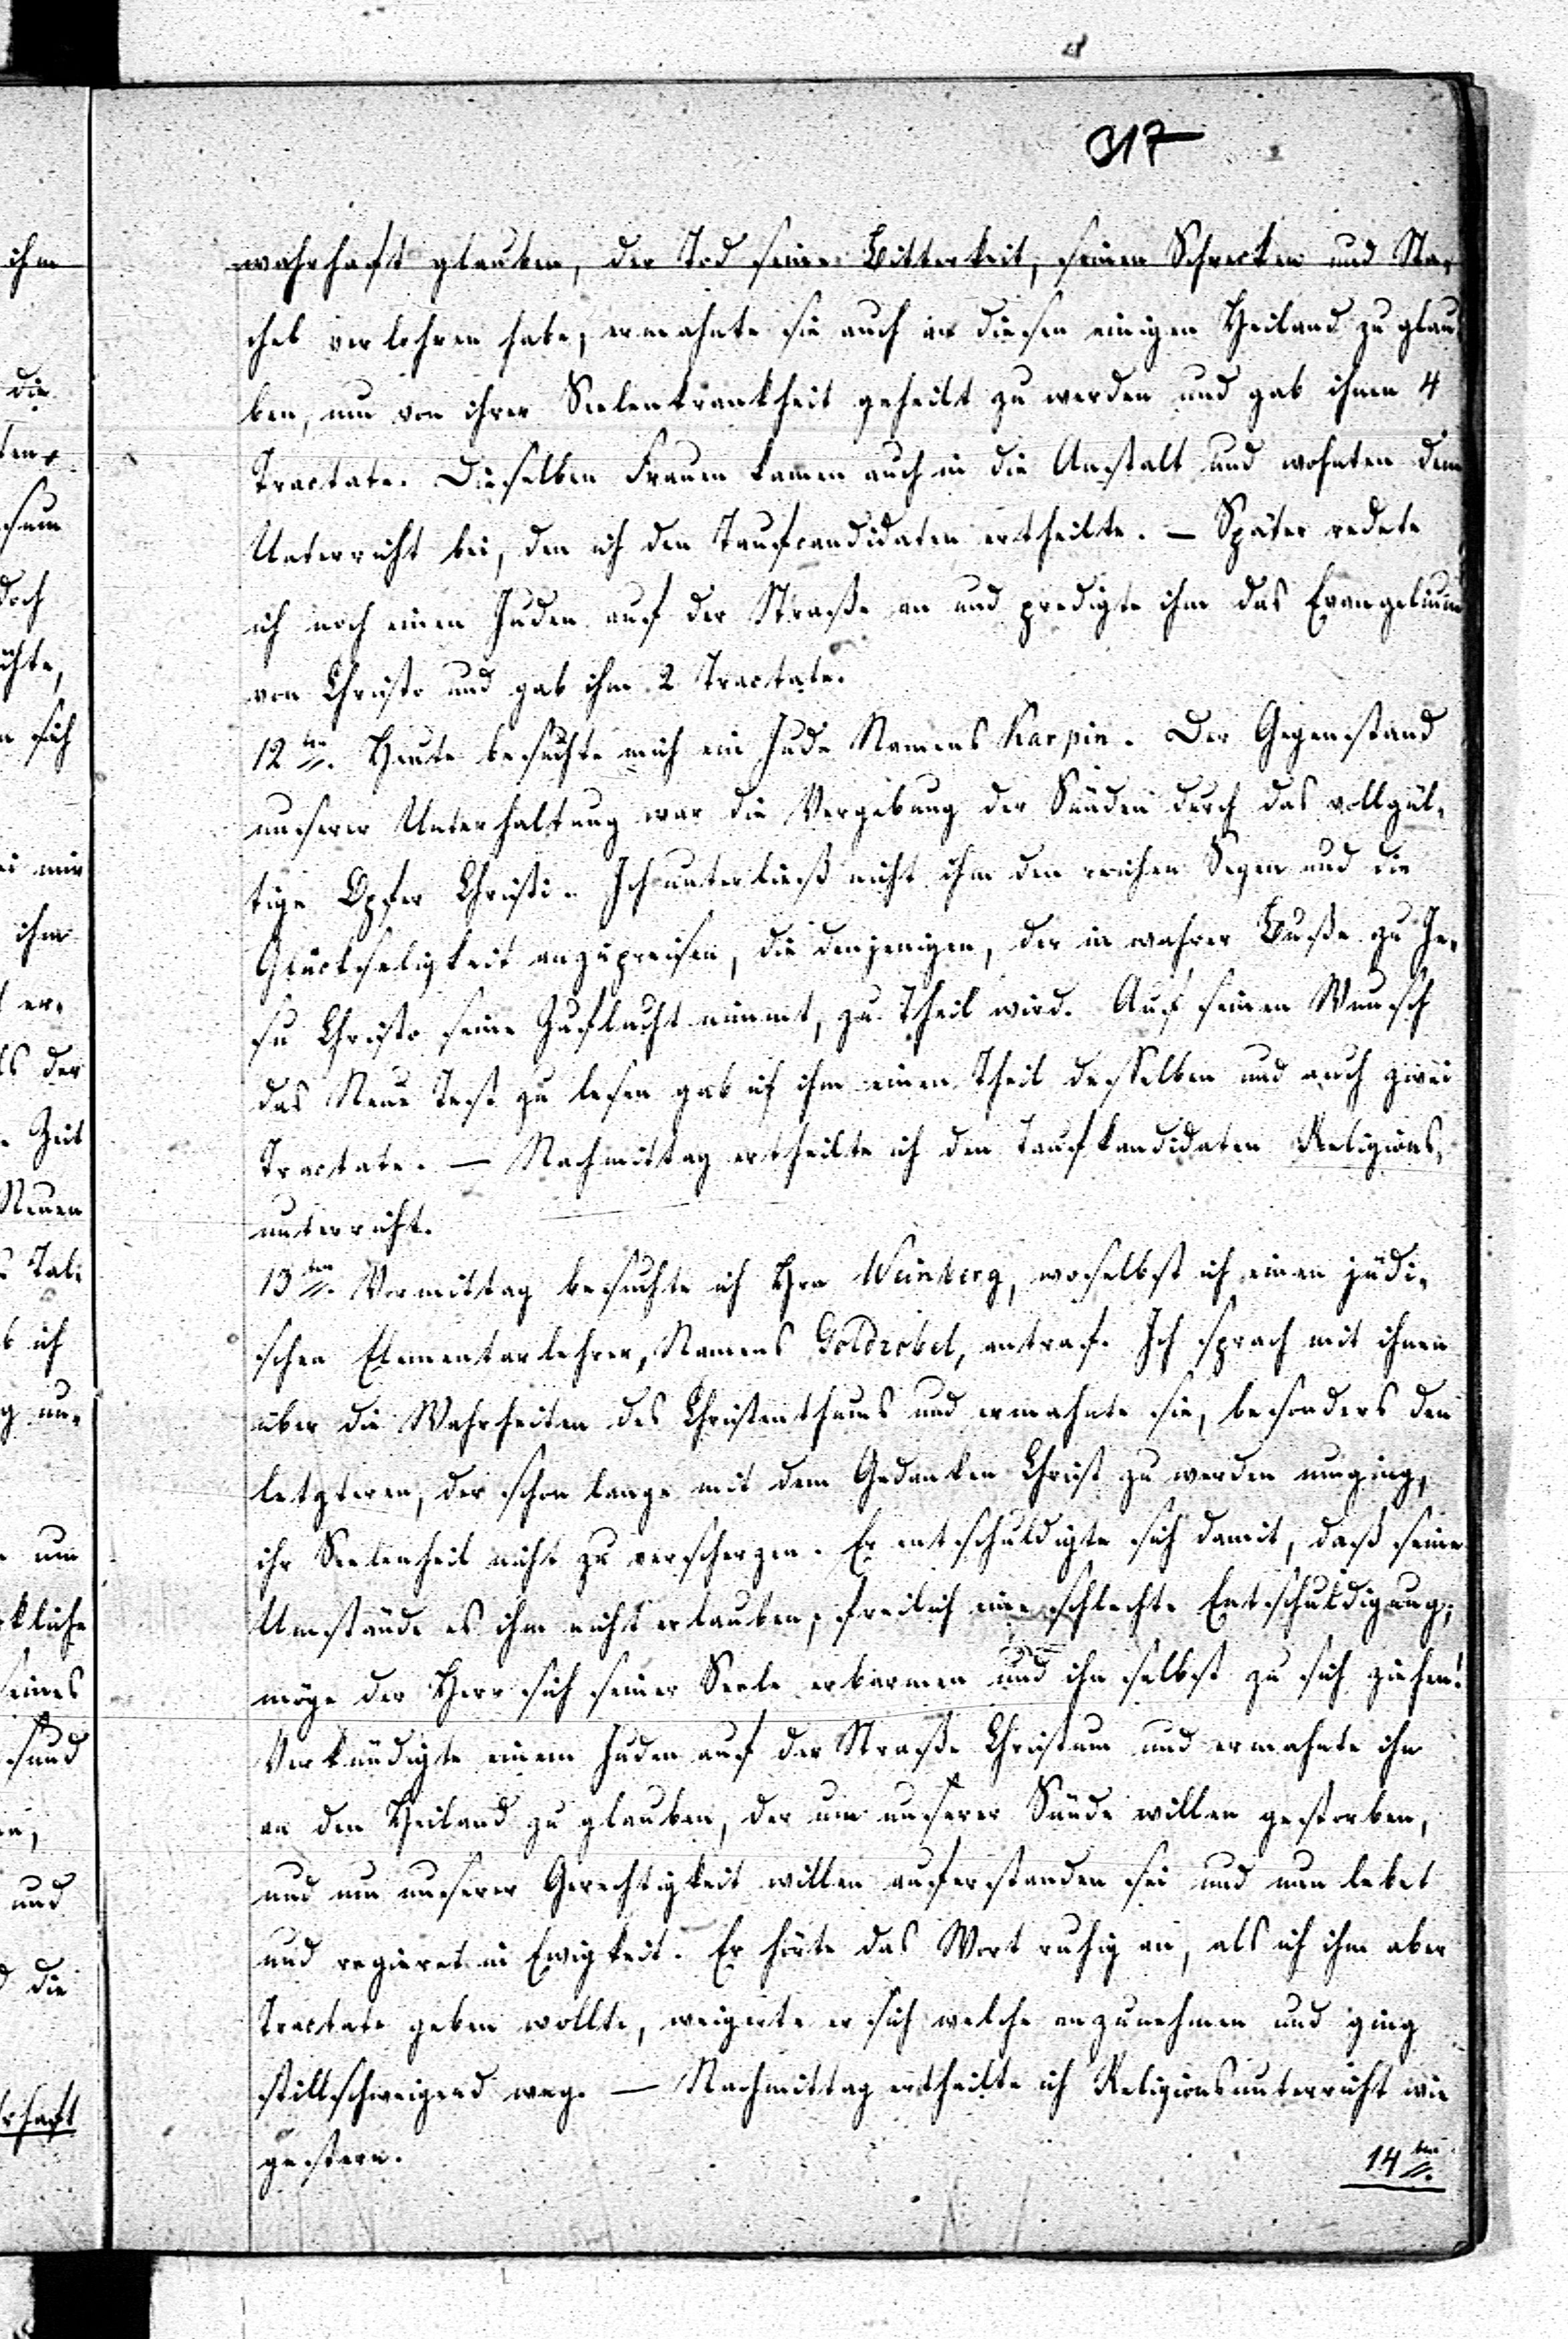 317
wahrhaft glauben, der Tod seine Bitterkeit, seinen Schrecken und Sta-
chel verlohren habe, ermahnte sie auch an diesen einigen Heiland zu glau-
ben, um von ihrer Seelenkrankheit geheilt zu werden und gab ihnen 4
Tractate. Dieselben Frauen kamen auch in die Anstalt und wohnten dem
Unterricht bei, den ich den Taufcandidaten ertheilte. — Später redete
ich noch einen Juden auf der Straße an und predigte ihm das Evangelium
von Christo und gab ihm 2 Tractate.
12ten. Heute besuchte mich ein Jude Namens Karpin. Der Gegenstand
unserer Unterhaltung war die Vergebung der Sünden durch das vollgül-
tige Opfer Christi. Ich unterließ nicht ihm den reichen Segen und die
Glückseligkeit anzupreisen, die denjenigen, der in wahrer Buße zu Je-
su Christo seine Zuflucht nimmt, zu Theil wird. Auf seinen Wunsch
das Neue Test zu lesen gab ich ihm einen Theil desselben und auch zwei
Tractate. — Nachmittag ertheilte ich den Taufkandidaten Religions-
unterricht.
13ten. Vormittag besuchte ich Hrn Weinberg, woselbst ich einen jüdi-
schen Elementarlehrer, Namens Goldzobel, antraf. Ich sprach mit ihnen
über die Wahrheiten des Christenthums und ermahnte sie, besonders den
letzteren, der schon lange mit dem Gedanken Christ zu werden umging,
ihr Seelenheil nicht zu verscherzen. Er entschuldigte sich damit, daß seine
Umstände es ihm nicht erlauben; freilich eine schlechte Entschuldigung;
möge der Herr sich seiner Seele erbarmen und ihn selbst zu sich ziehen!
Verkündigte einem Juden auf der Straße Christum und ermahnte ihn
an den Heiland zu glauben, der um unserer Sünde willen gestorben,
und um unserer Gerechtigkeit willen auferstanden sei und nun lebet
und regieret in Ewigkeit. Er hörte das Wort ruhig an, als ich ihm aber
Tractate geben wollte, weigerte er sich welche anzunehmen und ging
stillschweigend weg. — Nachmittag ertheilte ich Religionsunterricht wie
gestern.
14ten.